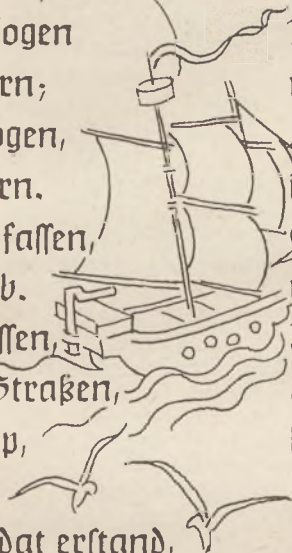 ogen
rn;
ogen,
rn.
faſſen,
b.
ſſen,
Straßen,
p,
dat erſtand,